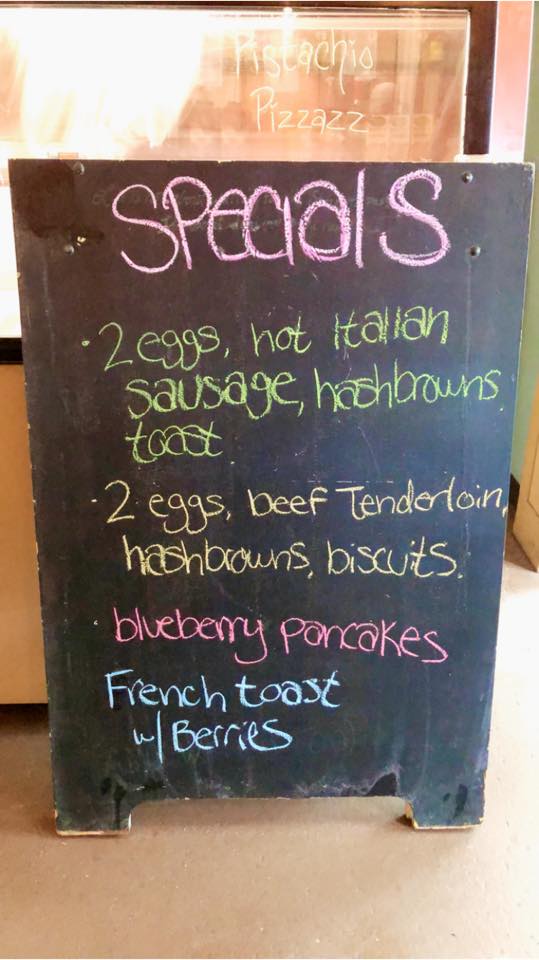 Pistachio
Pizzazz
SPECialS
· 2 eggs, hot Italian
sausage, hashbrowns,
toast
· 2 eggs, beef Tenderloin,
hashbrowns, biscuits.
· blueberry pancakes
French toast
w/ Berries